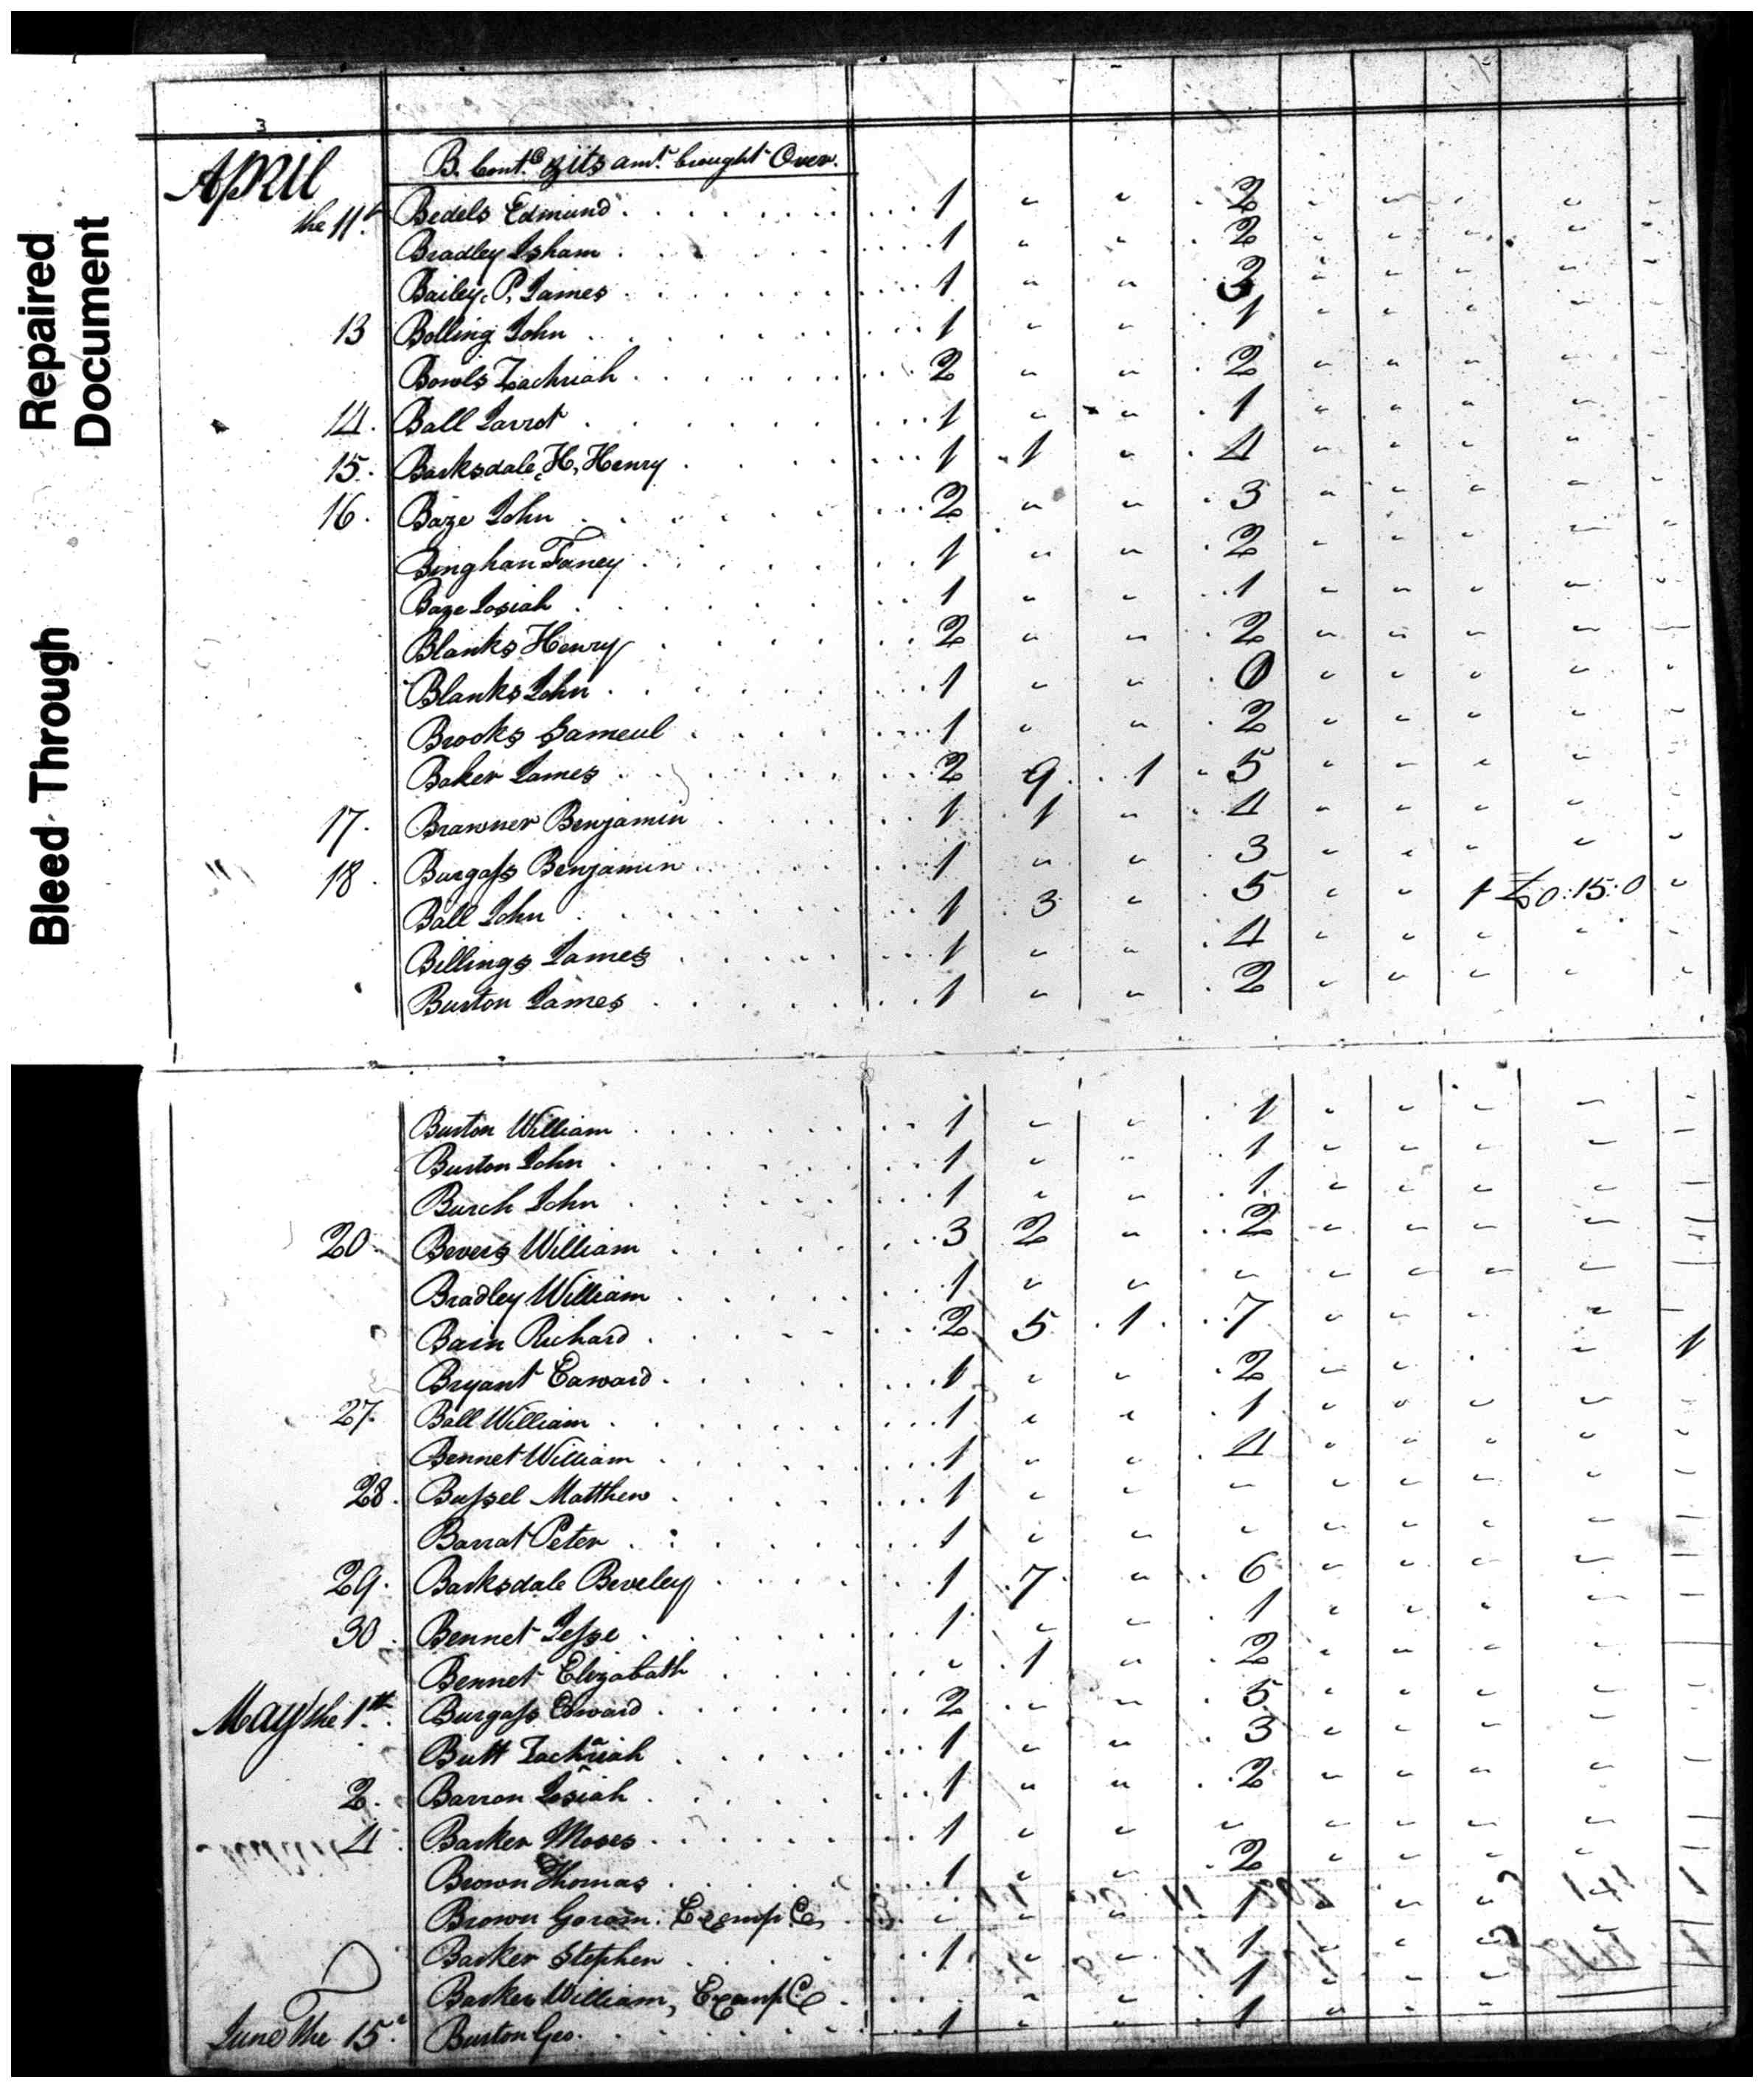 Repaired
Document
Bleed Through
3
April
B. Cont.d & its am.t brought Over.
the 11th Bedels Edmund 1 " " 2 " " " " "
Bradley Isham 1 " " 2 " " " " "
Bailey, P, James 1 " " 3 " " " " "
13 Bolling John 1 " " 1 " " " " "
Bowls Zachriah 2 " " 2 " " " " "
14. Ball 1 " " 1 " " " " "
15. Barksdale, H, Henry 1 1 " 4 " " " " "
16. Baze John 2 " " 3 " " " " "
Binghan Faney 1 " " 2 " " " " "
Baze Josiah 1 " " 1 " " " " "
Blanks Henry 2 " " 2 " " " " "
Blanks John 1 " " 0 " " " " "
Brooks Sameul 1 " " 2 " " " " "
Baker James 2 9 1 5 " " " " "
17. Brawner Benjamin 1 1 " 4 " " " " "
18. Burgass Benjamin 1 " " 3 " " " " "
Ball John 1 3 " 5 " " 1 £0:15:0 "
Billings James 1 " " 4 " " " " "
Burton James 1 " " 2 " " " " "
Burton William 1 " " 1 " " " " "
Burton John 1 " " 1 " " " " "
Burch John 1 " " 1 " " " " "
20 Bevers William 3 2 " 2 " " " " "
Bradley William 1 " " " " " " " "
Bain Richard 2 5 1 7 " " " " 1
Bryant Edward 1 " " 2 " " " "
27. Ball William 1 " " 1 " " " " "
Bennet William 1 " " 4 " " " " "
28. Bussel Matthew 1 " " " " " " " "
Barrat Peter 1 " " " " " " " "
29. Barksdale Beveley 1 7 " 6 " " " " "
30. Bennet Jesse 1 " " 1 " " " "
Bennet Elizabath " 1 " 2 " " " "
May the 1st Burgass Edward 2 " " 5 " " " " "
Butt Zachariah 1 " " 3 " " " " "
2. Barron Josiah 1 " " 2 " " " " "
4 Barker Moses 1 " " " " " " " "
Brown Thomas 1 " " 2 " " " "
Brown Exemp " " " 1 " " "
Barker Stephen 1 " " 1 " " "
Barker William, Exemp " " 1 " " "
June The 15th Burton Geo. 1 " " 1 " " "